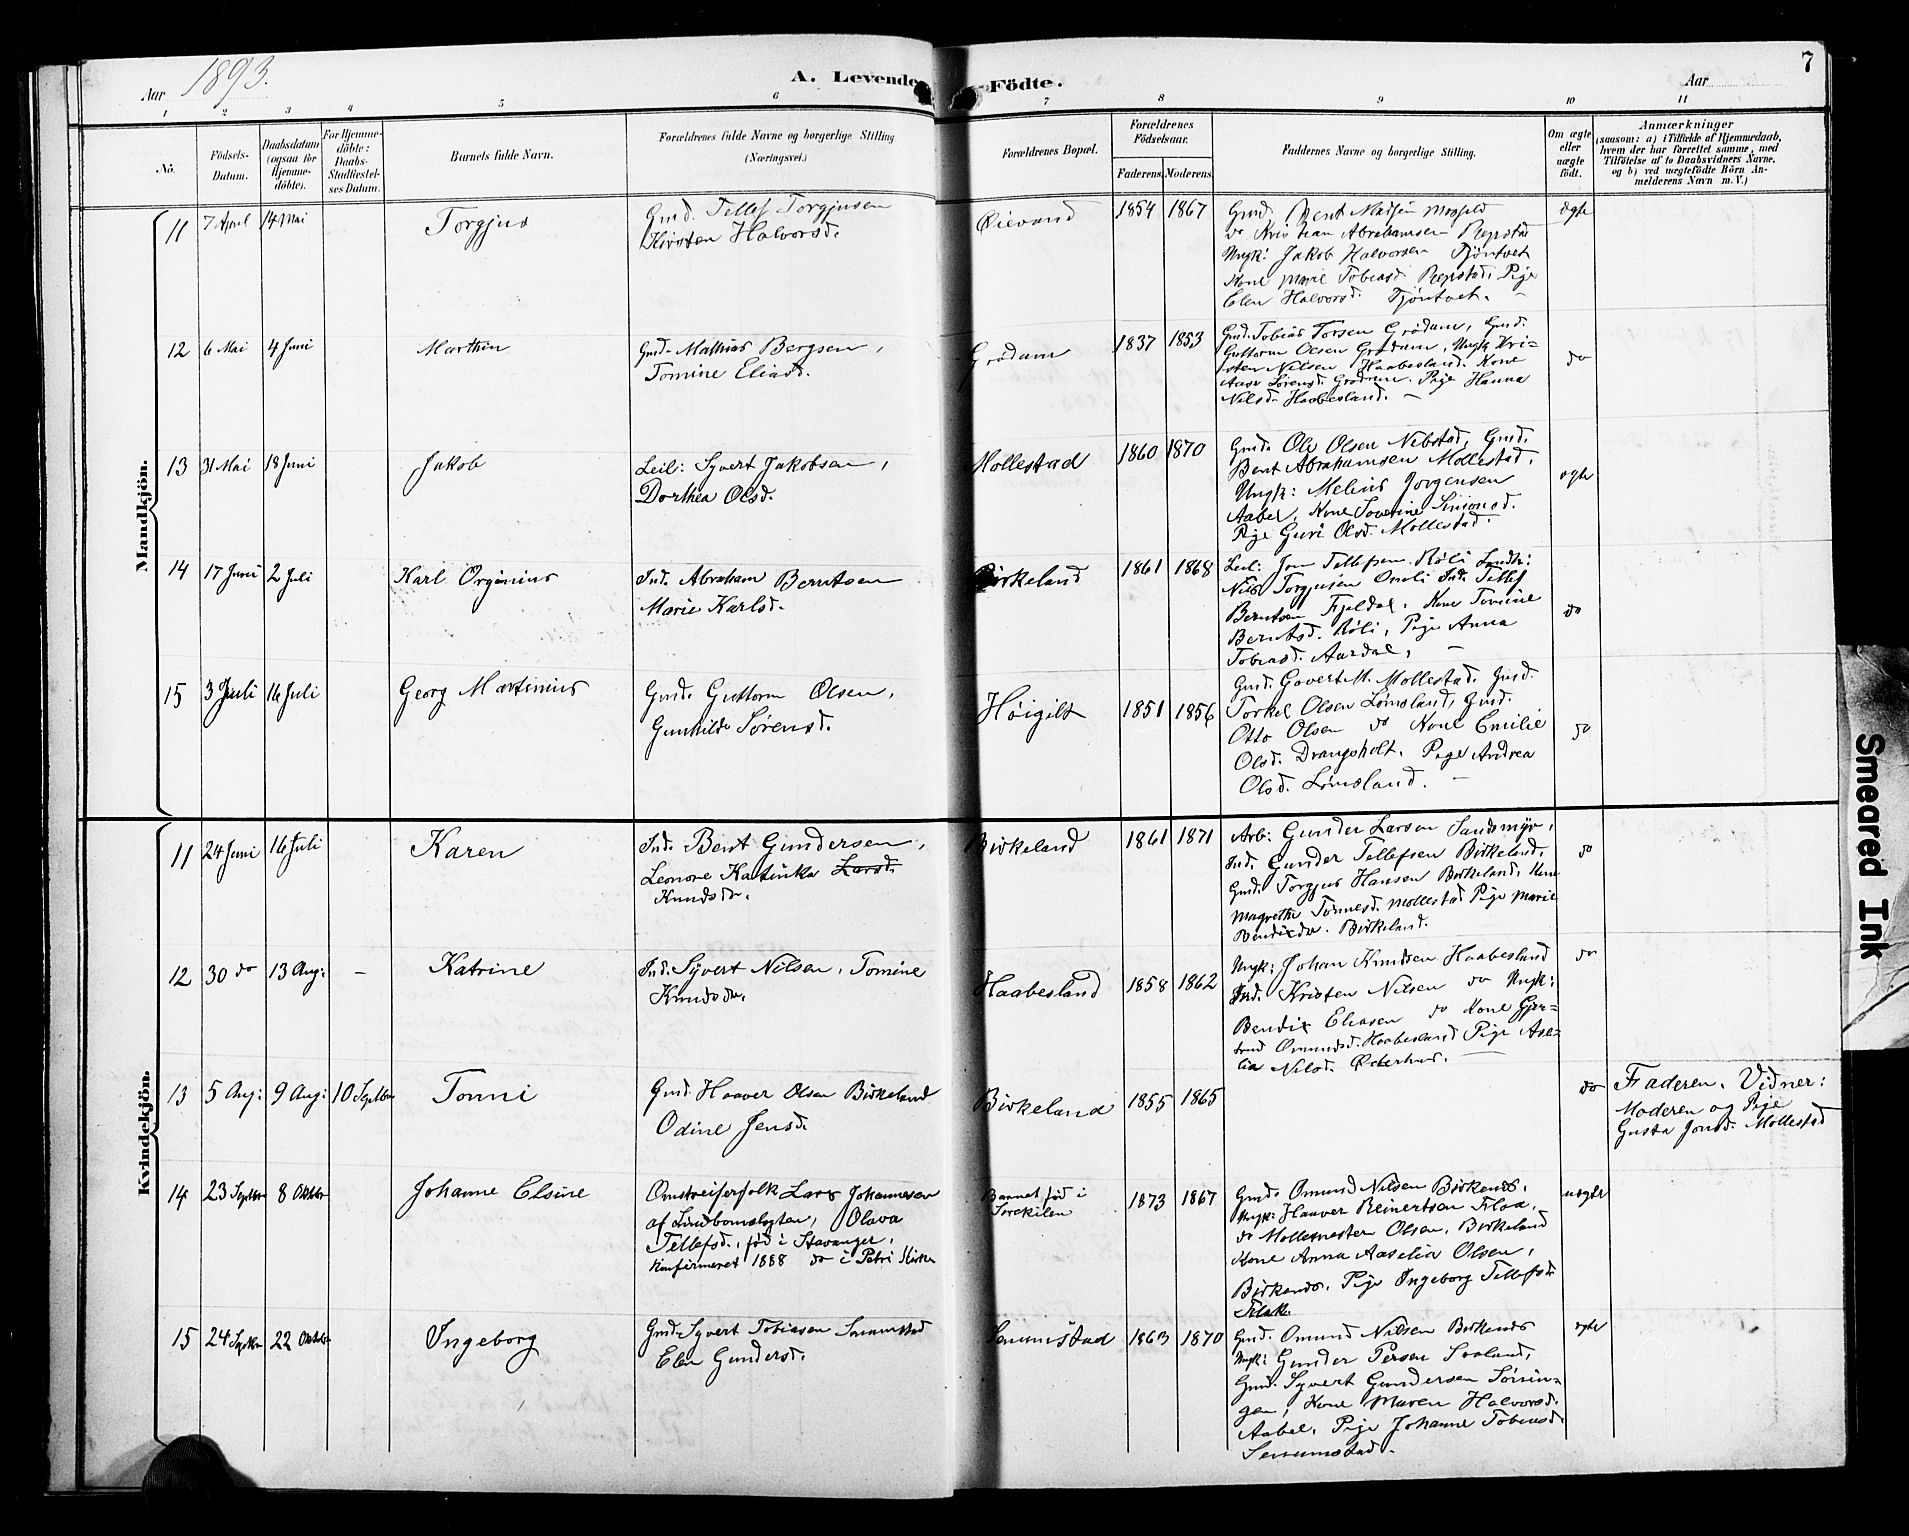 7
Aar 1893. A. Levende Födte. Aar
1 2 3 4 5 6 7 8 9 10 11
No. Födsels-Datum. Daabsdatum (ogsaa for Hjemmedöbte). For Hjemmedöbte: Daabs-Stadfæstelses Datum. Barnets fulde Navn. Forældrenes fulde Navne og borgerlige Stilling (Næringsvei.) Forældrenes Bopæl. Forældrenes Födselsaar. Faderens Moderens Faddernes Navne og borgerlige Stilling. Om ægte eller uægte födt. Anmærkninger (saasom: a) i Tilfælde af Hjemmedaab, hvem der har forrettet samme, med Tilföielse af to Daabsvidners Navne, og b) ved uægtefödte Börn Anmelderens Navn m. V.)
Mandkjön.
11 7 April 14 Mai Torgjus Gmd. Tellef Torgjusen Øievand 1854 1867 ægte
Kirsten Halvorsd.
Gmd. Bent Madsen
do Kristian Abrahamsen Repstad
Ungk: Jakob Halvorsen Tjöntvet
Kone Marie Tobiasd Repstad, Pige
Elen Halvorsd. Tjöntvet. –
12 6 Mai 4 Juni Marthin Gmd. Mathias Bergsen, Grödum 1837 1853 do
Tomine Eliasd.
Gmd. Tobias Torsen Grödum, Gmd.
Guttorm Olsen Grödum, Ungk Kri-
sten Nilsen Haabesland. Kone
Aase Sörensd. Grödum. Pige Hanna
Nilsd. Haabesland. –
13 31 Mai 18 Juni Jakob Leil: Syvert Jakobsen, Mollestad 1860 1870 ægte
Dorthea Olsd.
Gmd. Ole Olsen Nebstad, Gmd.
Bent Abrahamsen Mollestad.
Ungk: Melius Jorgensen
Aabel, Kone Severine Simonsd.
Pige Guri Olsd. Mollestad.
14 17 Juni 2 Juli Karl Orginius Ind. Abraham Berntsen Birkeland 1861 1868 do
Marie Karlsd.
Leil: Jon Tellefsen Röli
Nils Torgjusen Omli Ind. Tellef
Berntsen Fjeldal, Kone Tomine
Berntsd. Röli, Pige Anna
Tobiasd. Aardal, –
15 3 Juli 16 Juli Georg Martinius Gmd. Guttorm Olsen, Höigilt 1851 1856 do
Gunhilde Sörensd.
Gmd. Govert M. Mollestad. Gmd.
Torkel Olsen Lömsland, Gmd.
Otto Olsen do Kone Emilie
Olsd. Drangsholt. Pige Andrea
Olsd. Lömsland. –
Kvindekjön.
11 24 Juni 16 Juli Karen Ind. Bent Gundersen, Birkeland 1861 1871 do
Leonore Katinka Larsd.
Knudsdr.
Arb: Gunder Larsen Sandsmyr,
Ind. Gunder Tellefsen Birkeland,
Gmd. Torgjus Hansen Birkeland, Kone
Magrethe Tönnesd. Mollestad Pige Marie
Bendixdr. Birkeland.
12 30 do 13 Aug: – Katrine Ind. Syvert Nilsen, Tomine Haabesland 1858 1862 do
Knudsdr.
Ungk: Johan Knudsen Haabesland
Ind. Kristen Nilsen do Ungk:
Bendix Eliasen do Kone Gjer-
trud Omundsd. Haabesland Pige Ase-
lia Nilsd. Østerhus. –
13 5 Aug: 9 Aug: 10 Septbr Tonni Gmd. Haaver Olsen Birkeland Birkeland 1855 1865 do
Odine Jensd.
Faderen. Vidner:
Moderen og Pige
Gusta Jonsd. Mollestad
14 23 Septbr 8 Oktbr Johanne Elsine Omstreiferfolk Lars Johannesen Barnet föd i 1873 1867 uægte
af Lindbomslegten, Olava
Tellefsd., föd i Stavanger,
Konfirmeret 1888 do i Petri Kirke
Gmd. Omund Nilsen Birkenes,
Ungk: Haaver Reinertsen Flaa,
do Mollemester Olsen, Birkeland
Kone Anna Aaselia Olsen,
Birkenes. Pige Ingeborg Tellefsdr
Flak.
15 24 Septbr 22 Oktbr Ingeborg Gmd. Syvert Tobiasen Senumstad Senumstad 1863 1870 ægte
Elen Gundersd.
Gmd. Omund Nilsen Birkenes
Ungk: Gunder Persen Svaland,
Gmd. Syvert Gundersen
Kone Maren Halvorsd.
Aabel, Pige Johanne Tobiasd.
Senumstad.
Smeared Ink